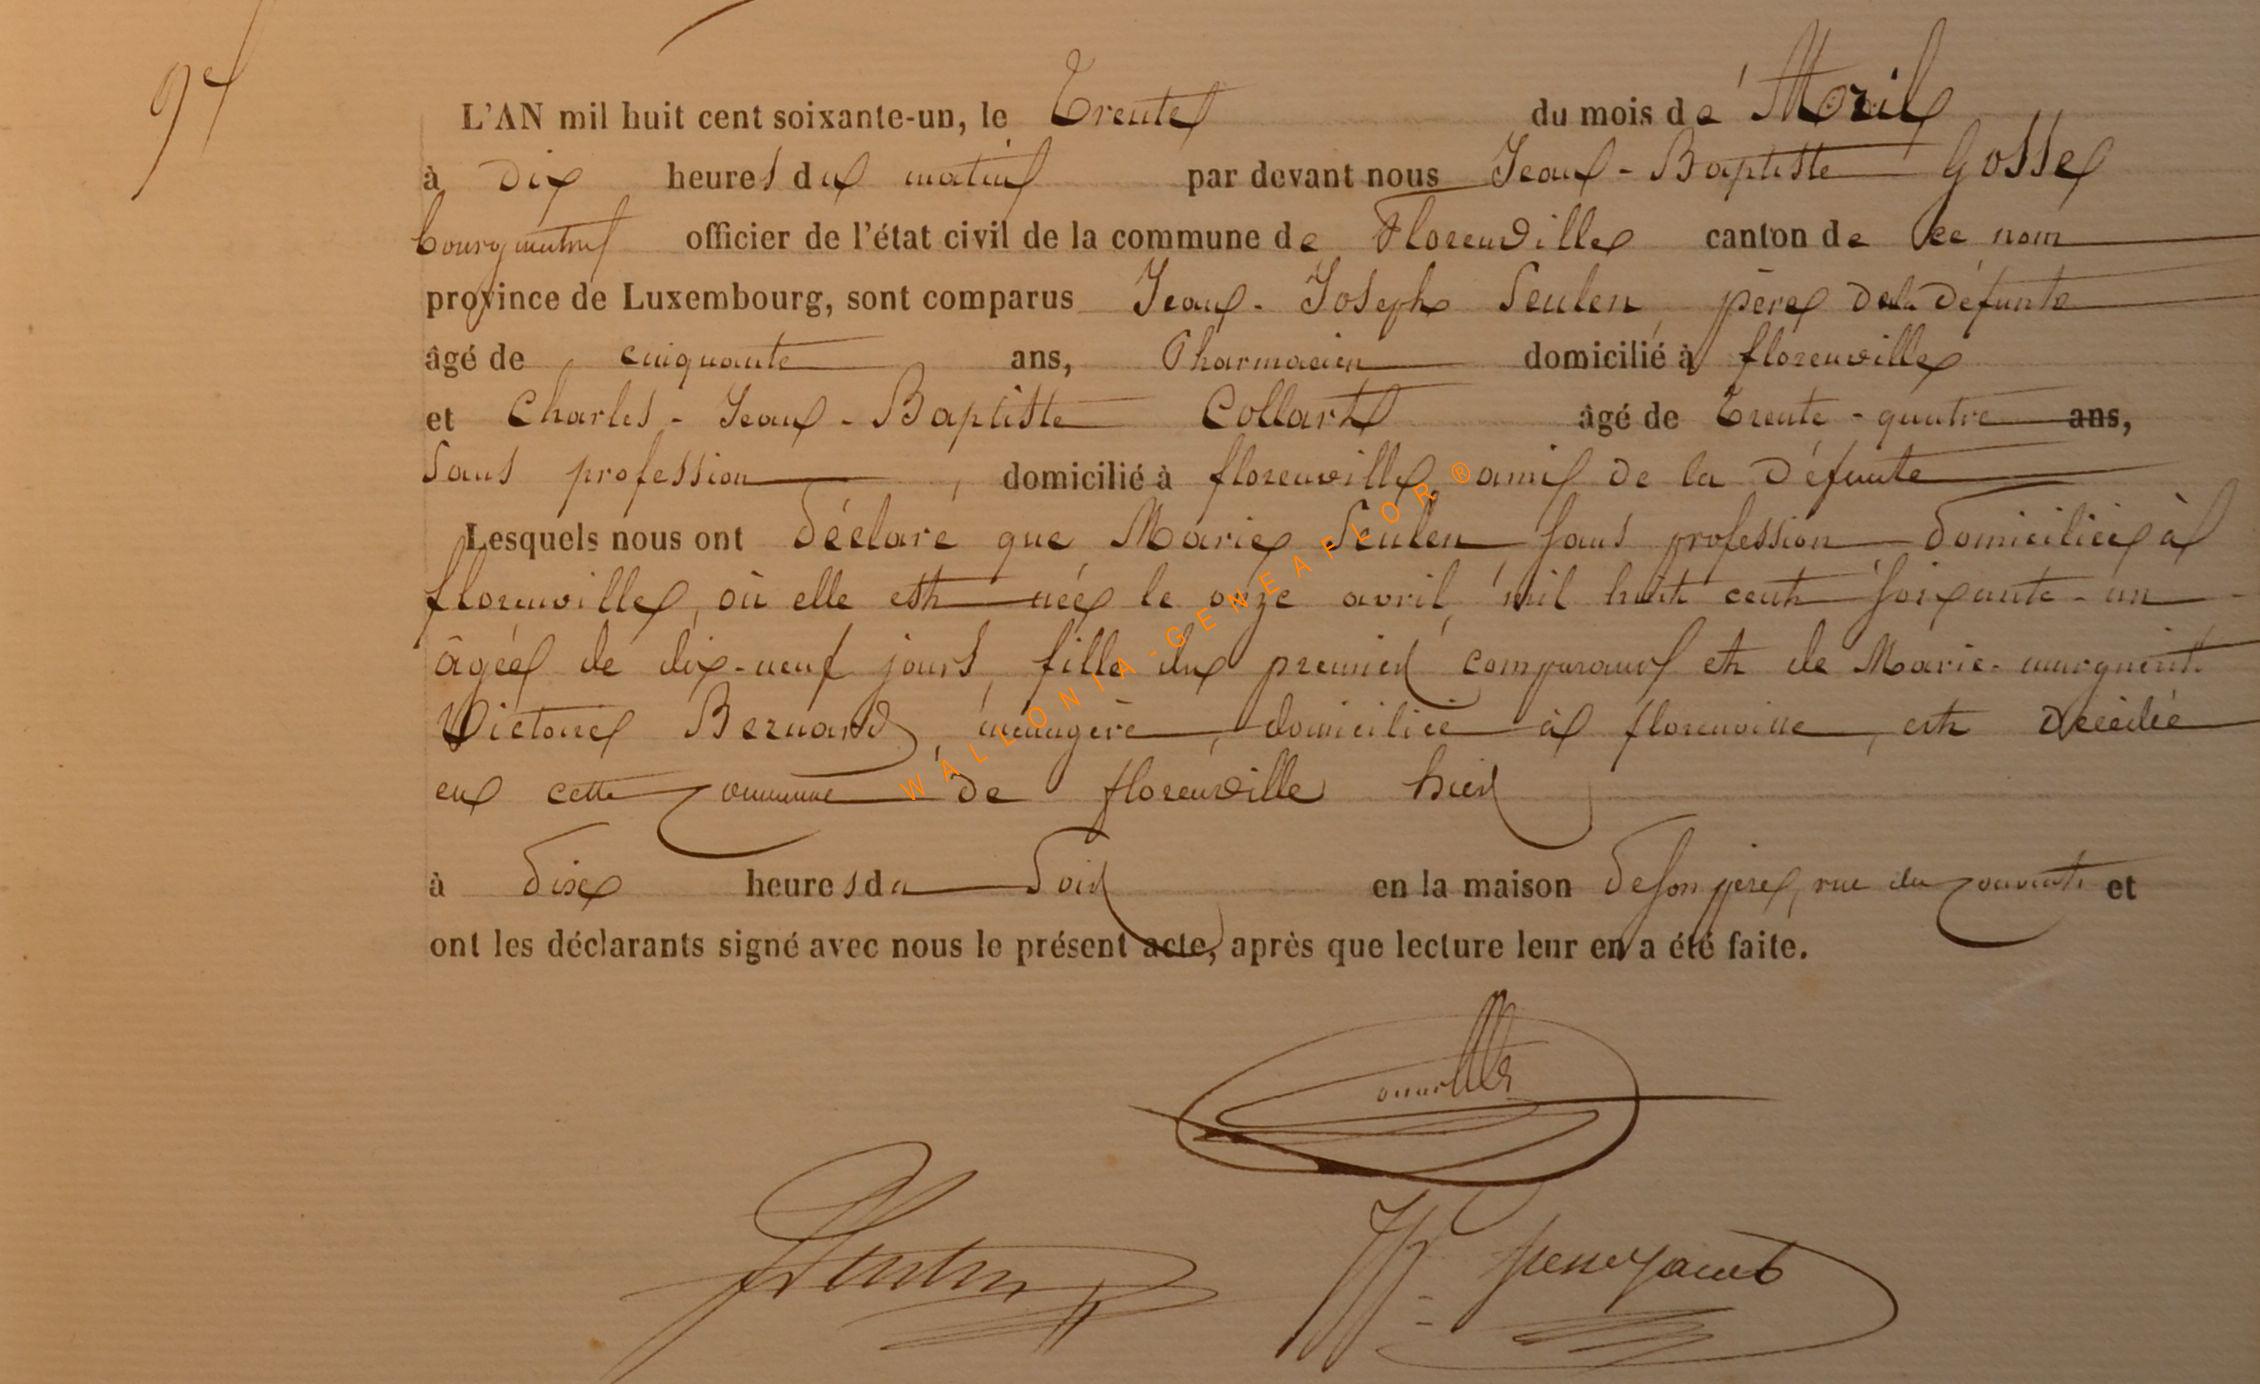 9e
L'AN mil huit cent soixante-un, le Trente du mois de Avril
à dix heures du matin par devant nous Jean-Baptiste Gosse
bourgmestre officier de l'état civil de la commune de Florenville canton de ce nom
province de Luxembourg, sont comparus Jean-Joseph Seulen père de la défunte
âgé de cinquante ans, Pharmacien domicilié à florenville
et Charles-Jean-Baptiste Collart âgé de trente-quatre ans,
sans profession, domicilié à florenville, ami de la défunte
Lesquels nous ont déclaré que Marie Seulen sans profession domiciliée à
florenville, où elle est née le onze avril mil huit cent soixante-un
âgée de dix-neuf jours, fille du premier comparant et de Marie-marguerite
Victoire Bernard, ménagère, domiciliée à florenville, est décédée
en cette commune de florenville hier
à dix heures du soir en la maison de son père, rue du couvent et
ont les déclarants signé avec nous le présent acte, après que lecture leur en a été faite.
WALLONIA-GENEAFLOR®